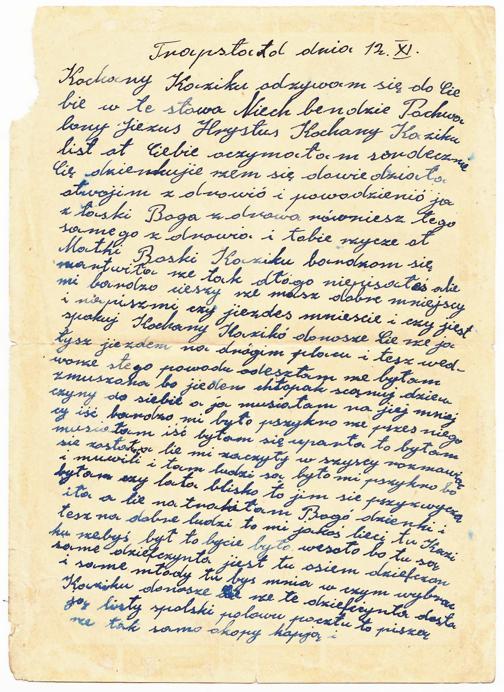 Trapstatd dnia 12. XI.
Kochany Kaziku odzywam się do Cie
bie w te słowa Niech bendzie Pochwa
lony Jezus Hrystus Kochany Kaziku
list ot Ciebie oczymałam serdecznie
Cię dzienkuje rzem się dowiedziała
otwojim z drowió i powodzienió ja
z łaski Boga z drowa równiesz tego
samego z drowia i tobie rzycze ot
Matki Boski Kaziku bandzom się
martwiła rze tak dłógo niepisałeś ale
mi bardzo cieszy rze masz dobre mniejscy
i napiszmi czy jiezdes mniescie i czy jiest
spokuj Kochany Kazikó donosze Cie rze ja
tysz jiezdem na drógim placu i tesz
wone stego powodu odeszłam rze byłam
zmuszana bo jieden chłopak scanią dziew
czyny do siebie a ja musiałam na jiej mniej
cy iść bardzo mi było pszykno rze przes niego
musiałam iść byłam się uparta to byłam
sie została lie mi zaczyły w szyscy rozmawiać
i muwili i tam ludzi są było mi pszykro bo
byłam czy lata blisko to jim sie przyzwycza
iła a lie na trafiłam Bogó dzienki i
tesz na dobre ludzi to mi jakoś lieci tu Kazi
ku rzebyś był to bycie było wesoło bo tu są
same dziefczynta jiest tu osiem dziefczon
i same młody tu byś mnia w czym wybrac
Kaziku donosze rze te dziefczynta dosta
ją listy spolski polowu pocztu to piszą
rze tak samo chopy łapją i